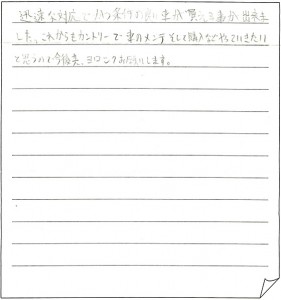 迅速な対応で、かつ条件の良い車が買えて事が出来ま
した。これからもカントリーで車のメンテそして購入などやっていきたい
と思うので今後共、ヨロシクお願いします。